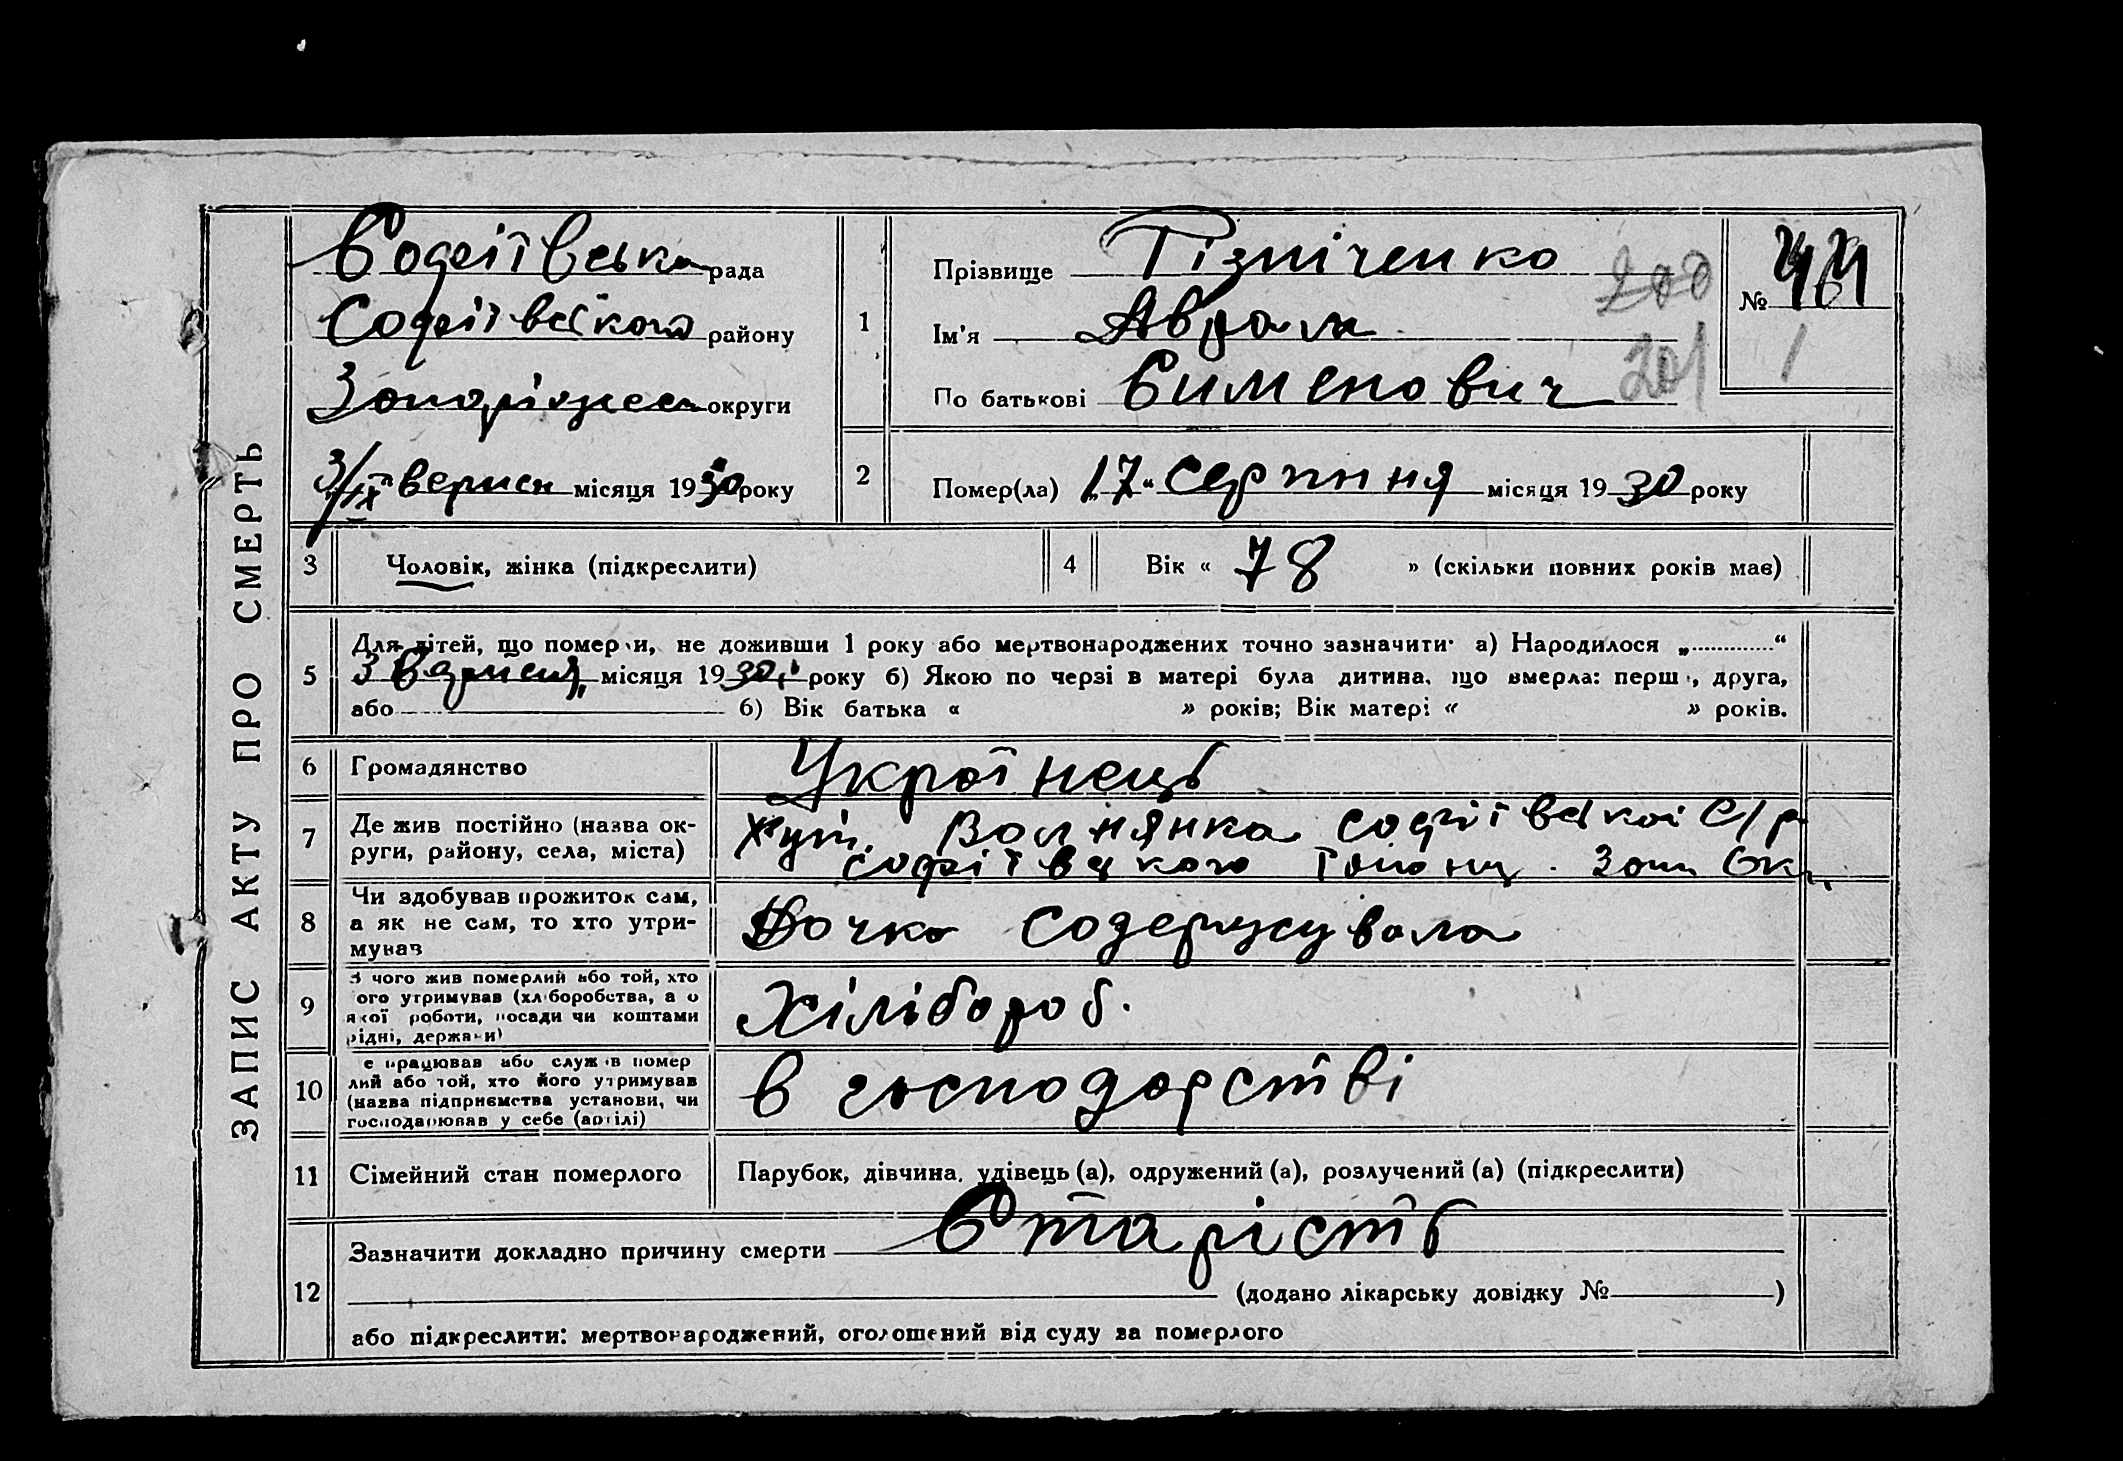 ЗАПИС АКТУ ПРО СМЕРТЬ
Софіївська рада
Софіївського району
Запоріжськ округи
3/IX вересн місяця 1930 року
1
Прізвище Різніченко
Ім'я Аврам
По батькові Сименович
200
201
№
1
2
Помер(ла) „17“ серпння місяця 1930 року
3 Чоловік, жінка (підкреслити)
4 Вік « 78 » (скільки повних років має)
5 Для дітей, що померли, не доживши 1 року або мертвонароджених точно зазначити: а) Народилося „.............“
3 вересня місяця 1930 року б) Якою по черзі в матері була дитина, що вмерла: перша, друга,
або б) Вік батька « » років; Вік матері « » років.
6 Громадянство Українець
7 Де жив постійно (назва округи, району, села, міста) Хут. Волнянка Софіївської С/р
Софіївського Району. Зап Окр
8 Чи здобував прожиток сам,
а як не сам, то хто утри-
мував
Дочка содержувала
9 З чого жив померлий або той, хто
його утримував (хліборобства, а о
якої роботи, посади чи коштами
рідні, держави)
Хілібороб.
10 е працював або служив помер
лий або той, хто його утримував
(назва підприємства установи, чи
господарював у себе (артілі)
в господорстві
11 Сімейний стан померлого Парубок, дівчина, удівець (а), одружений (а), розлучений (а) (підкреслити)
12 Зазначити докладно причину смерти Старість
(додано лікарську довідку № )
або підкреслити: мертвонароджений, оголошений від суду за померлого